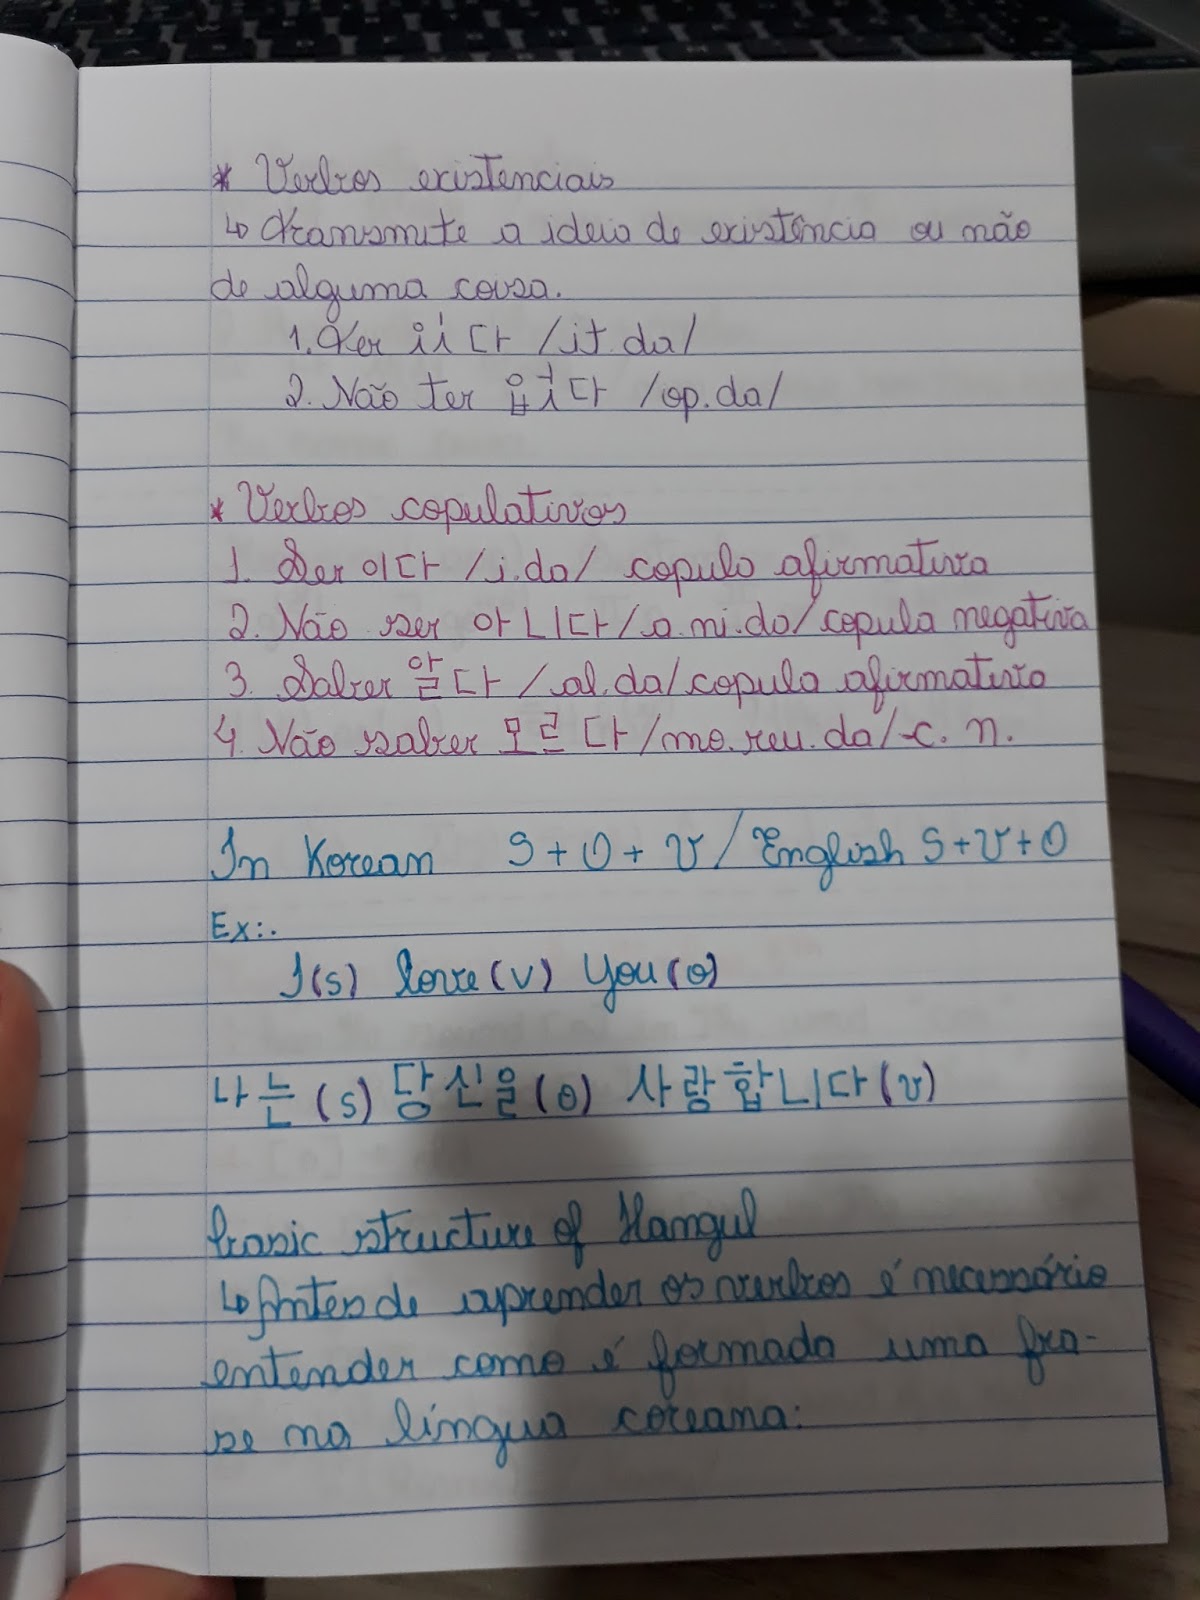 * Verbos existenciais
↳ transmite a ideia de existência ou não
de alguma coisa.
1. Ter 다 /it.da/
2. Não ter 다 /op.da/
* Verbos copulativos
1. Ser 이다 /i.da/ copula afirmativa
2. Não ser 아니다 /a.ni.da/ copula negativa
3. Saber 알다 /al.da/ copula afirmativa
4. Não saber 모르다 /mo.reu.da/ -c. n.
In Korean S+O+V / English S+V+O
Ex:.
I(s) love(v) you(o)
나는(s) 당신을(o) 사랑합니다(v)
basic structure of Hangul
↳ Antes de aprender os verbos é necessário
entender como é formada uma fra-
se na língua coreana: